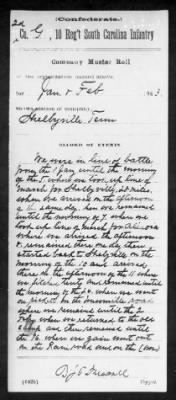 (Confederate.)
2d
Co. G, 10 Reg't South Carolina Infantry
Company Muster Roll
of the organization named above,
for Jan & Feb 1863.
Shelbyville, Tenn
RECORD OF EVENTS.
We were in line of battle
from the 1 Jan until the morning
of the when we took up line of
march for Shelbyville 28 miles,
when we arrived on the afternoon
of the same day, here we remained
until the morning of 7. when we
took up line of march for
where we arrived the afternoon
& remained there one day then
started back to Shelbyville on the
morning of the 10 and arrived
there on the afternoon of the 11 where
we pitched tents and remained until
the morning of the when we went
on picket on the road
where we remained until the
Feby when we returned to the old
camp and there remained until
the 16. when we again went out
on the Rail road and on the (over)
(642b)
Copyist.